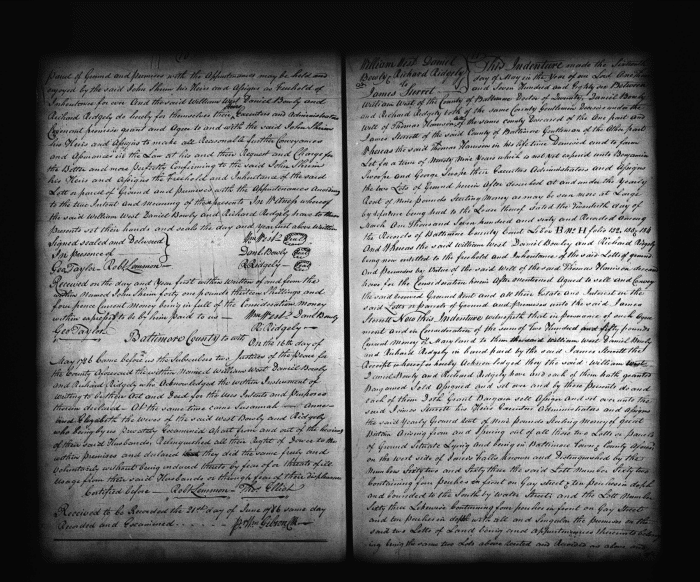 parcel of Ground and premises with the Appurtenances may be held and
enjoyed by the said John Shrim his Heirs and Assigns in Freehold of
Inheritance for ever And the said William West Daniel Bowly and
Richard Ridgely do hereby for themselves their Executors and Administrators
Covenant promise grant and Agree to and with the said John Shrim
his Heirs and Assigns to make all Reasonable further Conveyances
and Assurances in the Law at his and their Request and Charge for
the Better and more perfectly Confirming to the said John Shrim
his Heirs and Assigns the Freehold and Inheritance of the said
Lott or parcel of Ground and Premises with the Appurtenances According
to the true Intent and Meaning of these presents In Witness whereof
the said William West Daniel Bowly and Richard Ridgely have to these
presents set their hands and seals the day and year first above Written
Signed sealed and Delivered
In presence of
Wm West Seal
Danl Bowly Seal
R Ridgely Seal
Geo Taylor Robt Lemmon
Received on the day and year first within Written of and from the
within Named John Shrim forty one pounds thirteen Shillings and
four pence Current Money being in full of the Consideration money
within expressed to be by him paid to us
Wm West Danl Bowly
Geo Taylor R Ridgely
Baltimore County to wit On the 16th day of
May 1786 Came before us the Subscribers two Justices of the peace for
the County aforesaid the within Named William West Daniel Bowly
and Richard Ridgely who Acknowledged the within Instrument of
writing to be their Act and Deed for the Uses Intents and Purposes
therein declared At the same time came Susannah Anne
and Elizabeth the wives of the said West Bowly and Ridgely
who being by us privately Examined Apart from and out of the hearing
of their said Husbands Relinquished all their Right of Dower to the
within premises and declared they did the same freely and
Voluntarily without being induced thereto by fear of or threats of ill
Usage from their said Husbands or through fear of their displeasure
Certified before Robt Lemmon Thos Elliot
Received to be Recorded the 21st day of June 1786 same day
Recorded and Examined
Wm Gibson Clk
William West Daniel
Bowly & Richard Ridgely
To
James Sterett
This Indenture made the Sixteenth
day of May in the Year of our Lord One thous
and Seven Hundred and Eighty six Between
William West of the County of Baltimore Doctor of Divinity Daniel Bowly
and Richard Ridgely both of the same County Gentlemen Devisees under the
Will of Thomas Harrison of the same County Deceased of the One part and
James Sterett of the said County of Baltimore Gentleman of the Other part
Whereas the said Thomas Harrison in his life time Demised and to farm
Let for a term of Ninety Nine Years which is not yet expired unto Benjamin
Swoope and George Swoope their Executors Administrators and Assigns
the two Lots of Ground herein After described at and under the Yearly
Rent of Nine pounds Sterling Money as may be seen more at Large
by Reference being had to the Lease thereof dated the Twentieth day of
March One Thousand Seven hundred and sixty and Recorded Among
the Records of Baltimore County Court Liber B No H folio
And Whereas the said William West Daniel Bowly and Richard Ridgely
being now entitled to the freehold and Inheritance of the said Lotts of ground
And Premises by Virtue of the said Will of the said Thomas Harrison deceased
have for the Consideration herein After mentioned Agreed to sell and Convey
the said yearly Ground Rent and all their Estate and Interest in the
said Lotts or parcels of Ground and Premises unto the said James
Sterett Now this Indenture witnesseth that in pursuance of such Agree
ment and in Consideration of the sum of Two Hundred and fifty pounds
Current Money of Maryland to them William West Daniel Bowly
and Richard Ridgely in hand paid by the said James Sterett the
Receipt whereof is hereby Acknowledged they the said William West
Daniel Bowly and Richard Ridgely have and each of them hath granted
Bargained Sold Assigned and set over and by these presents do and
each of them Doth Grant Bargain sell Assign And set over unto the
said James Sterett his Heirs Executors Administrators and Assigns
the said Yearly Ground Rent of Nine pounds Sterling Money of Great
Britain Arising from and Issuing out of all those two Lotts or parcels
of Ground Situate Lying and being in Baltimore Town & County aforesaid
on the West side of Jones's Falls known and Distinguished by the
Numbers Sixty two and Sixty three the said Lott Number Sixty two
Containing four perches in front on Gay street & ten perches in depth
and bounded to the South by Water Street and the Lott Number
Sixty three Likewise Containing four perches in front on Gay Street
and ten perches in depth with all and Singular the premises on the
said two Lotts of Land being and Appurtenances thereunto belong
ing being the same two Lots above devised and Recorded as above and